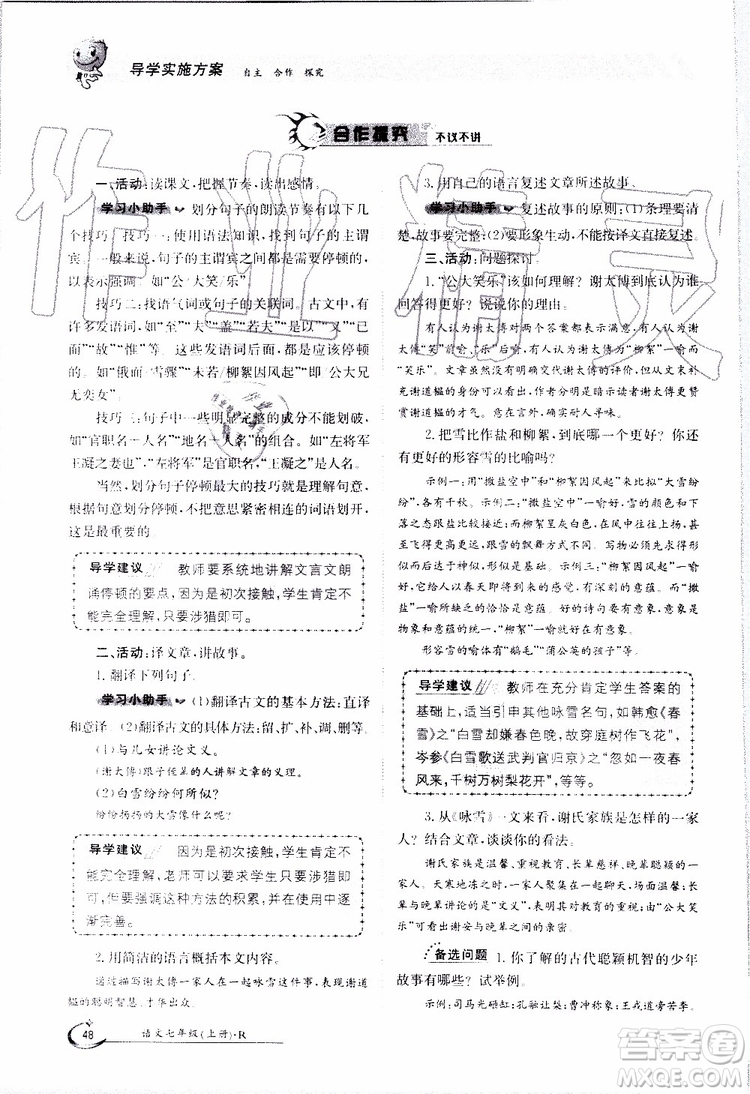 导学实施方案 自主 合作 探究
合作探究 不议不讲
一、活动:读课文,把握节奏,读出感情。
学习小助手 划分句子的朗读节奏有以下几
个技巧:技巧一:使用语法知识,找到句子的主谓
宾、一般在主谓之间、动宾之间都是需要停顿
的,以展示出句子的大意。如“公/大笑/乐”
技巧二:找语气词或句子的关联词。古文中,有
许多发语词,如“至”“夫”“盖”“若夫”“以”“已
而”“故”“惟”等。这些发语词后面应该停顿
的。如“俄而/雪骤”“未若/柳絮因风起”“即/公大兄
无奕女”
技巧三:句子中一些明显完整的成分不能划破,
如“官职名+人名”“地名+人名”的组合。如“左将军
王凝之妻也”,“左将军”是官职名,“王凝之”是人名。
当然,划分句子停顿最大的技巧就是理解句意,
根据句意划分停顿,不要把意思紧密相连的词语划开,
这是最重要的。
导学建议 教师要系统地讲解文言文朗
诵停顿的要点,因为是初次接触,学生肯定不
能完全理解,只要涉猎即可。
二、活动:译文章,讲故事。
1.翻译下列句子。
学习小助手 (1)翻译古文的基本方法:直译
和意译。(2)翻译古文的具体方法:留、扩、补、调、删等。
(1)与儿女讲论文义。
(谢太傅)跟子侄辈的人讲解文章的义理。
(2)白雪纷纷何所似?
纷纷扬扬的大雪像什么呢?
导学建议 因为是初次接触,学生肯定不
能完全理解,老师可以要求学生只打涉猎即
可,然后强调这种方法的积累,并在使用中逐
渐完善。
2.用简洁的语言概括本文内容。
通过描写谢太傅一家人在一起咏雪的情景,表现谢道
韫的聪明智慧、才华出众。
48 语文七年级(上册)·R
3.用自己的语言复述文章所述故事。
学习小助手 复述故事的原则:(1)条理要清
楚,故事要完整;(2)要形象生动,不能按译文直接复述。
三、活动:问题探讨。
1.“公大笑乐”该如何理解?谢太傅到底认为谁
回答得更好?说说你的理由。
有人认为谢太傅对两个答案都很满意。有人认为是谢
太傅“笑”前喻,“乐”后喻。有人认为谢太傅的大笑而
“笑乐”
补充谢道韫的身份,
是对谢道韫才气的
赞赏谢道韫的才气。含蓄婉转,确实耐人寻味。
2.把雪比作盐和柳絮,你更欣赏哪一个?你还
有更好的形容雪的比喻吗?
示例一:用“撒盐空中”和“柳絮因风起”来比拟“大雪纷
纷”,各有千秋。示例二:“撒盐空中”的比喻好,雪的颜色和
下落之态都跟盐比较接近;而柳絮呈灰白色,在风中往往上
扬,甚至飞得很高很远,跟雪的飘舞方式不同。写物必须首
先求得形似而后达于神似,形似是基础。示例三:“柳絮因风
起”一喻好,它给人以春天即将到来的感觉,有深刻的意蕴。“撒
盐”一喻所缺乏的恰恰是意蕴。好的诗句要有意象,意象是
物象和意蕴的统一。“柳絮”一喻好就好在有意象。
形容雪的喻体有“鹅毛”“蒲公英的孩子”等。
导学建议 教师在充分肯定学生答案的
基础上,适当引申其他咏雪名句,如韩愈《春
雪》“白雪却嫌春色晚,故穿庭树作飞花”,
岑参《白雪歌送武判官归京》“忽如一夜春
风来,千树万树梨花开”,等等。
3.从《咏雪》一文来看,谢氏家族是怎样的一家
人?结合文章,谈谈你的看法。
谢氏家族是温馨、重视教育、长辈慈祥、晚辈聪颖的一
家人。天寒地冻之时,一家人聚集在一起,可见温馨。长辈
与晚辈讲论的是诗文,表明其对教育的重视。从“公大笑
乐”可以看出谢安与晚辈之间的亲密。
备选问题 1.你了解的古代聪颖机智的少年
故事有哪些?试举例。
示例:司马光砸缸;孔融让梨;曹冲称象;王戎道旁苦李。
作业精灵
MXQE.COM